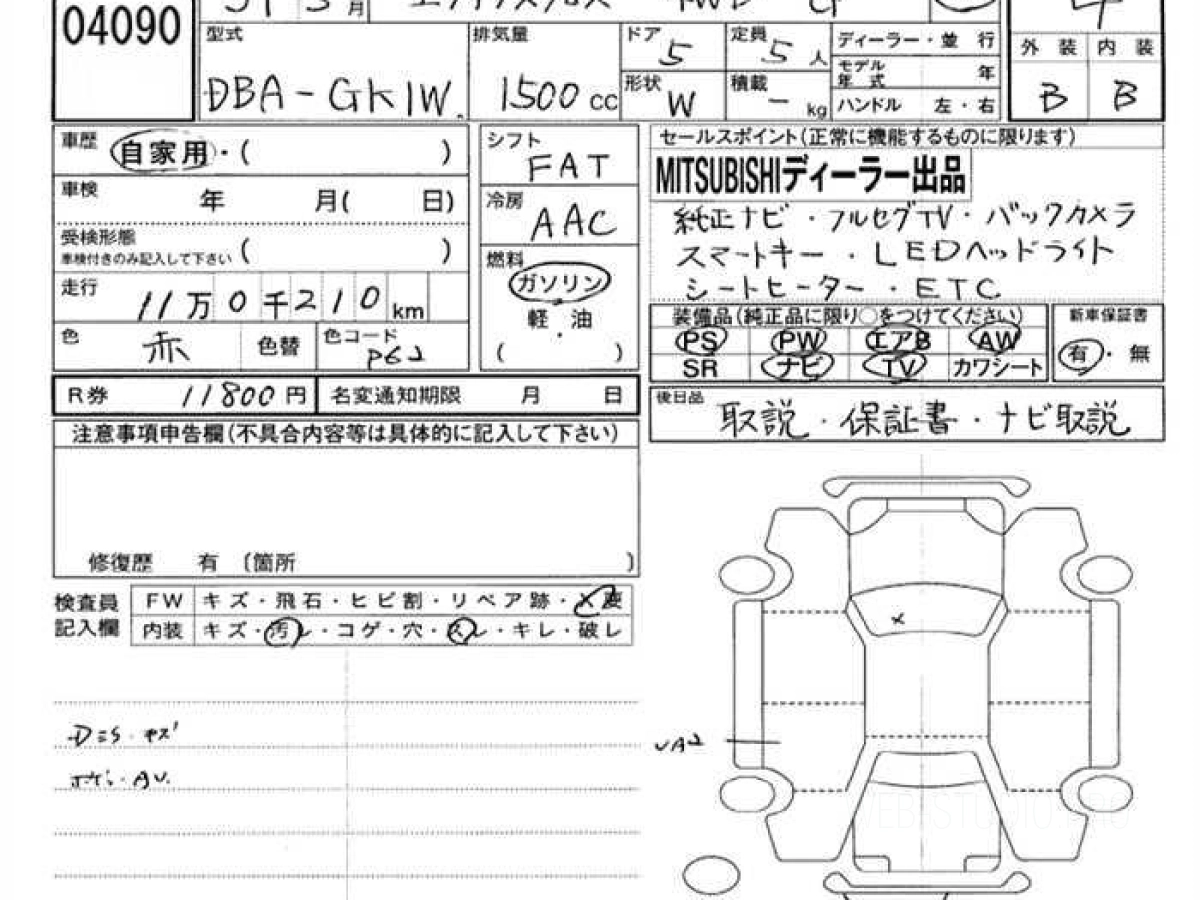 04090
31 3月 エクリプスクロス 4WD G 4
型式 排気量 ドア 5 定員 5人 ディーラー・並 行 外 装 内 装
DBA-GK1W. 1500cc 形状 W 積載 - kg モデル年式 年 B B
ハンドル 左・右
車歴 自家用・( )
車検 年 月( 日)
受検形態 ( )
車検付きのみ記入して下さい
走行 11万0千210km
色 赤 色替 色コード P62
シフト FAT
冷房 AAC
燃料 ガソリン
軽・油
( )
セールスポイント(正常に機能するものに限ります)
MITSUBISHIディーラー出品
純正ナビ・フルセグTV・バックカメラ
スマートキー・LEDヘッドライト
シートヒーター・ETC
装備品(純正品に限り○をつけてください) 新車保証書
PS PW エアB AW 有・無
SR ナビ TV カワシート
R券 11800円 名変通知期限 月 日
後日品 取説・保証書・ナビ取説
注意事項申告欄(不具合内容等は具体的に記入して下さい)
修復歴 有 〔箇所 )
検査員 FW キズ・飛石・ヒビ割・リペア跡・X要
記入欄 内装 キズ・汚レ・コゲ・穴・スレ・キレ・破レ
X
キズ
UA2
AU.